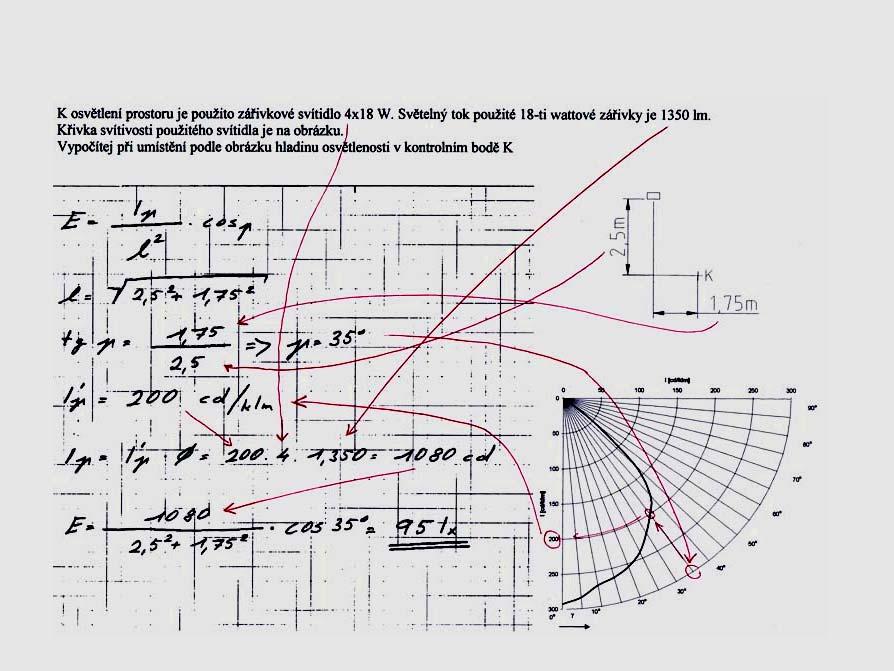 K osvětlení prostoru je použito zářivkové svítidlo 4x18 W. Světelný tok použité 18-ti wattové zářivky je 1350 lm.
Křivka svítivosti použitého svítidla je na obrázku.
Vypočítej při umístění podle obrázku hladinu osvětlenosti v kontrolním bodě K
E = Iγ / l² · cos γ
l = √2,5² + 1,75²
tg γ = 1,75 / 2,5 => γ = 35°
I'γ = 200 cd/klm
Iγ = I'γ Φ = 200 . 4 . 1,350 = 1080 cd
E = 1080 / 2,5² + 1,75² · cos 35° = 95 lx
2,5m
K
1,75m
I [cd/klm]
0 50 100 150 200 300
90°
80°
70°
50°
40°
30°
20°
10°
0° γ
I [cd/klm]
0
50
100
150
200
250
300